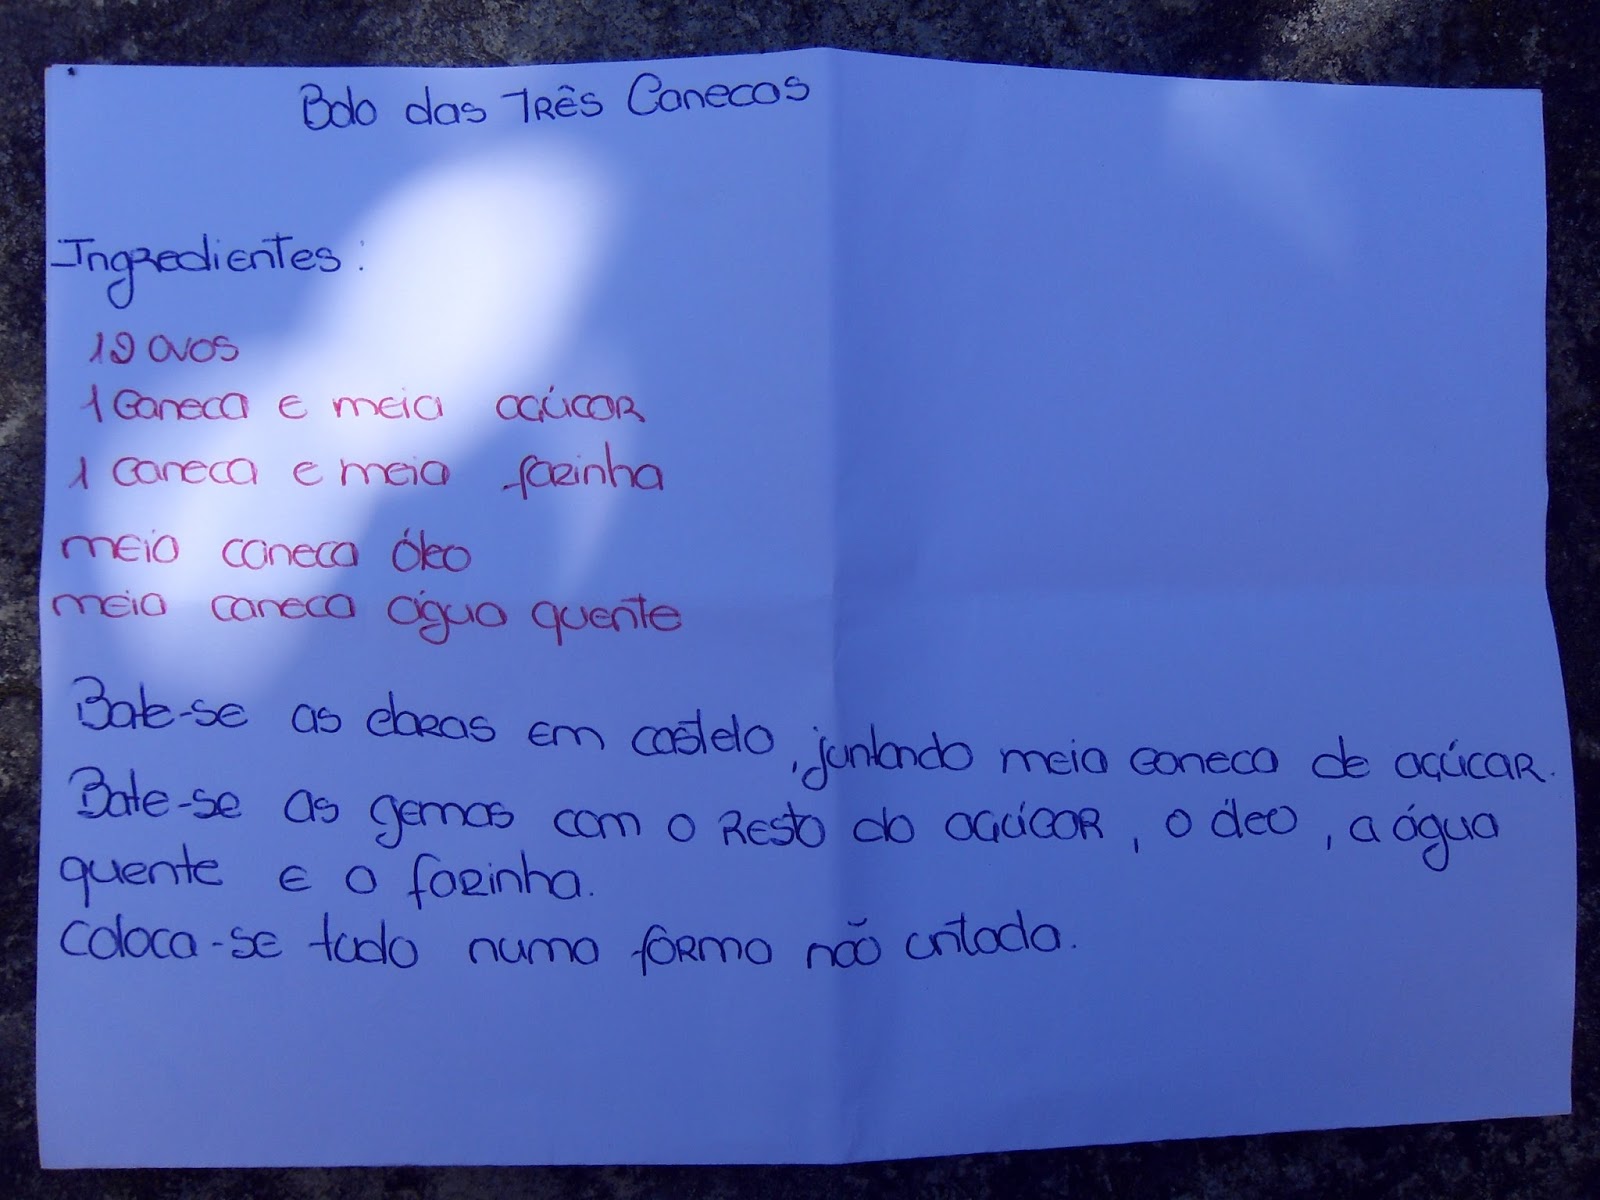 Bolo das Três Canecas
Ingredientes:
12 ovos
1 Caneca e meia açúcar
1 caneca e meia farinha
meia caneca óleo
meia caneca água quente
Bate-se as claras em castelo, juntando meia caneca de açúcar.
Bate-se as gemas com o resto do açúcar, o óleo, a água
quente e a farinha.
Coloca-se tudo numa forma não untada.